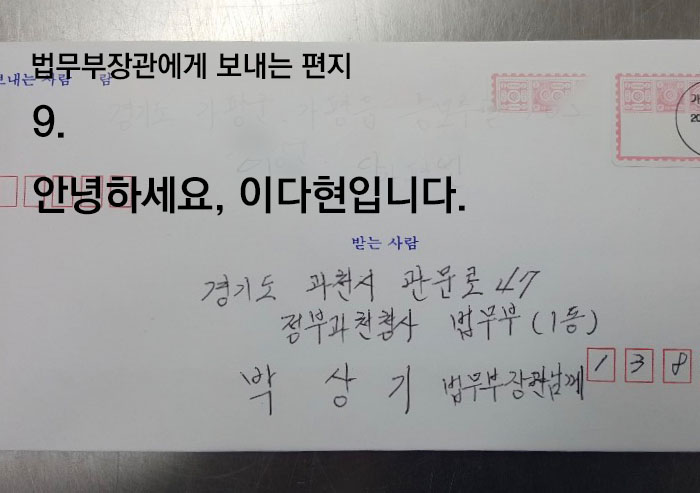 법무부장관에게 보내는 편지
보내는 사람 람
경기도 가평군 가평읍
9.
안녕하세요, 이다현입니다.
받는 사람
경기도 과천시 관문로 47
정부과천청사 법무부 (1동)
박 상 기 법무부장관님께
1 3 8